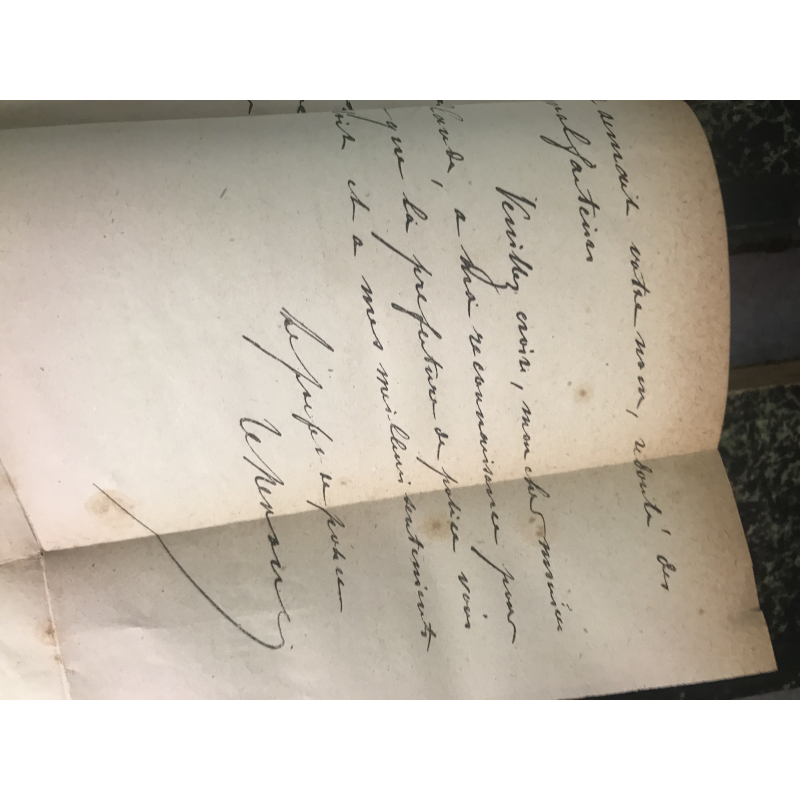 votre nom, redouté des
malfaiteurs
Veuillez croire, mon cher monsieur
à ma reconnaissance pour
que la préfecture de police vois
et a mes meilleurs sentiments
Le préfet de police